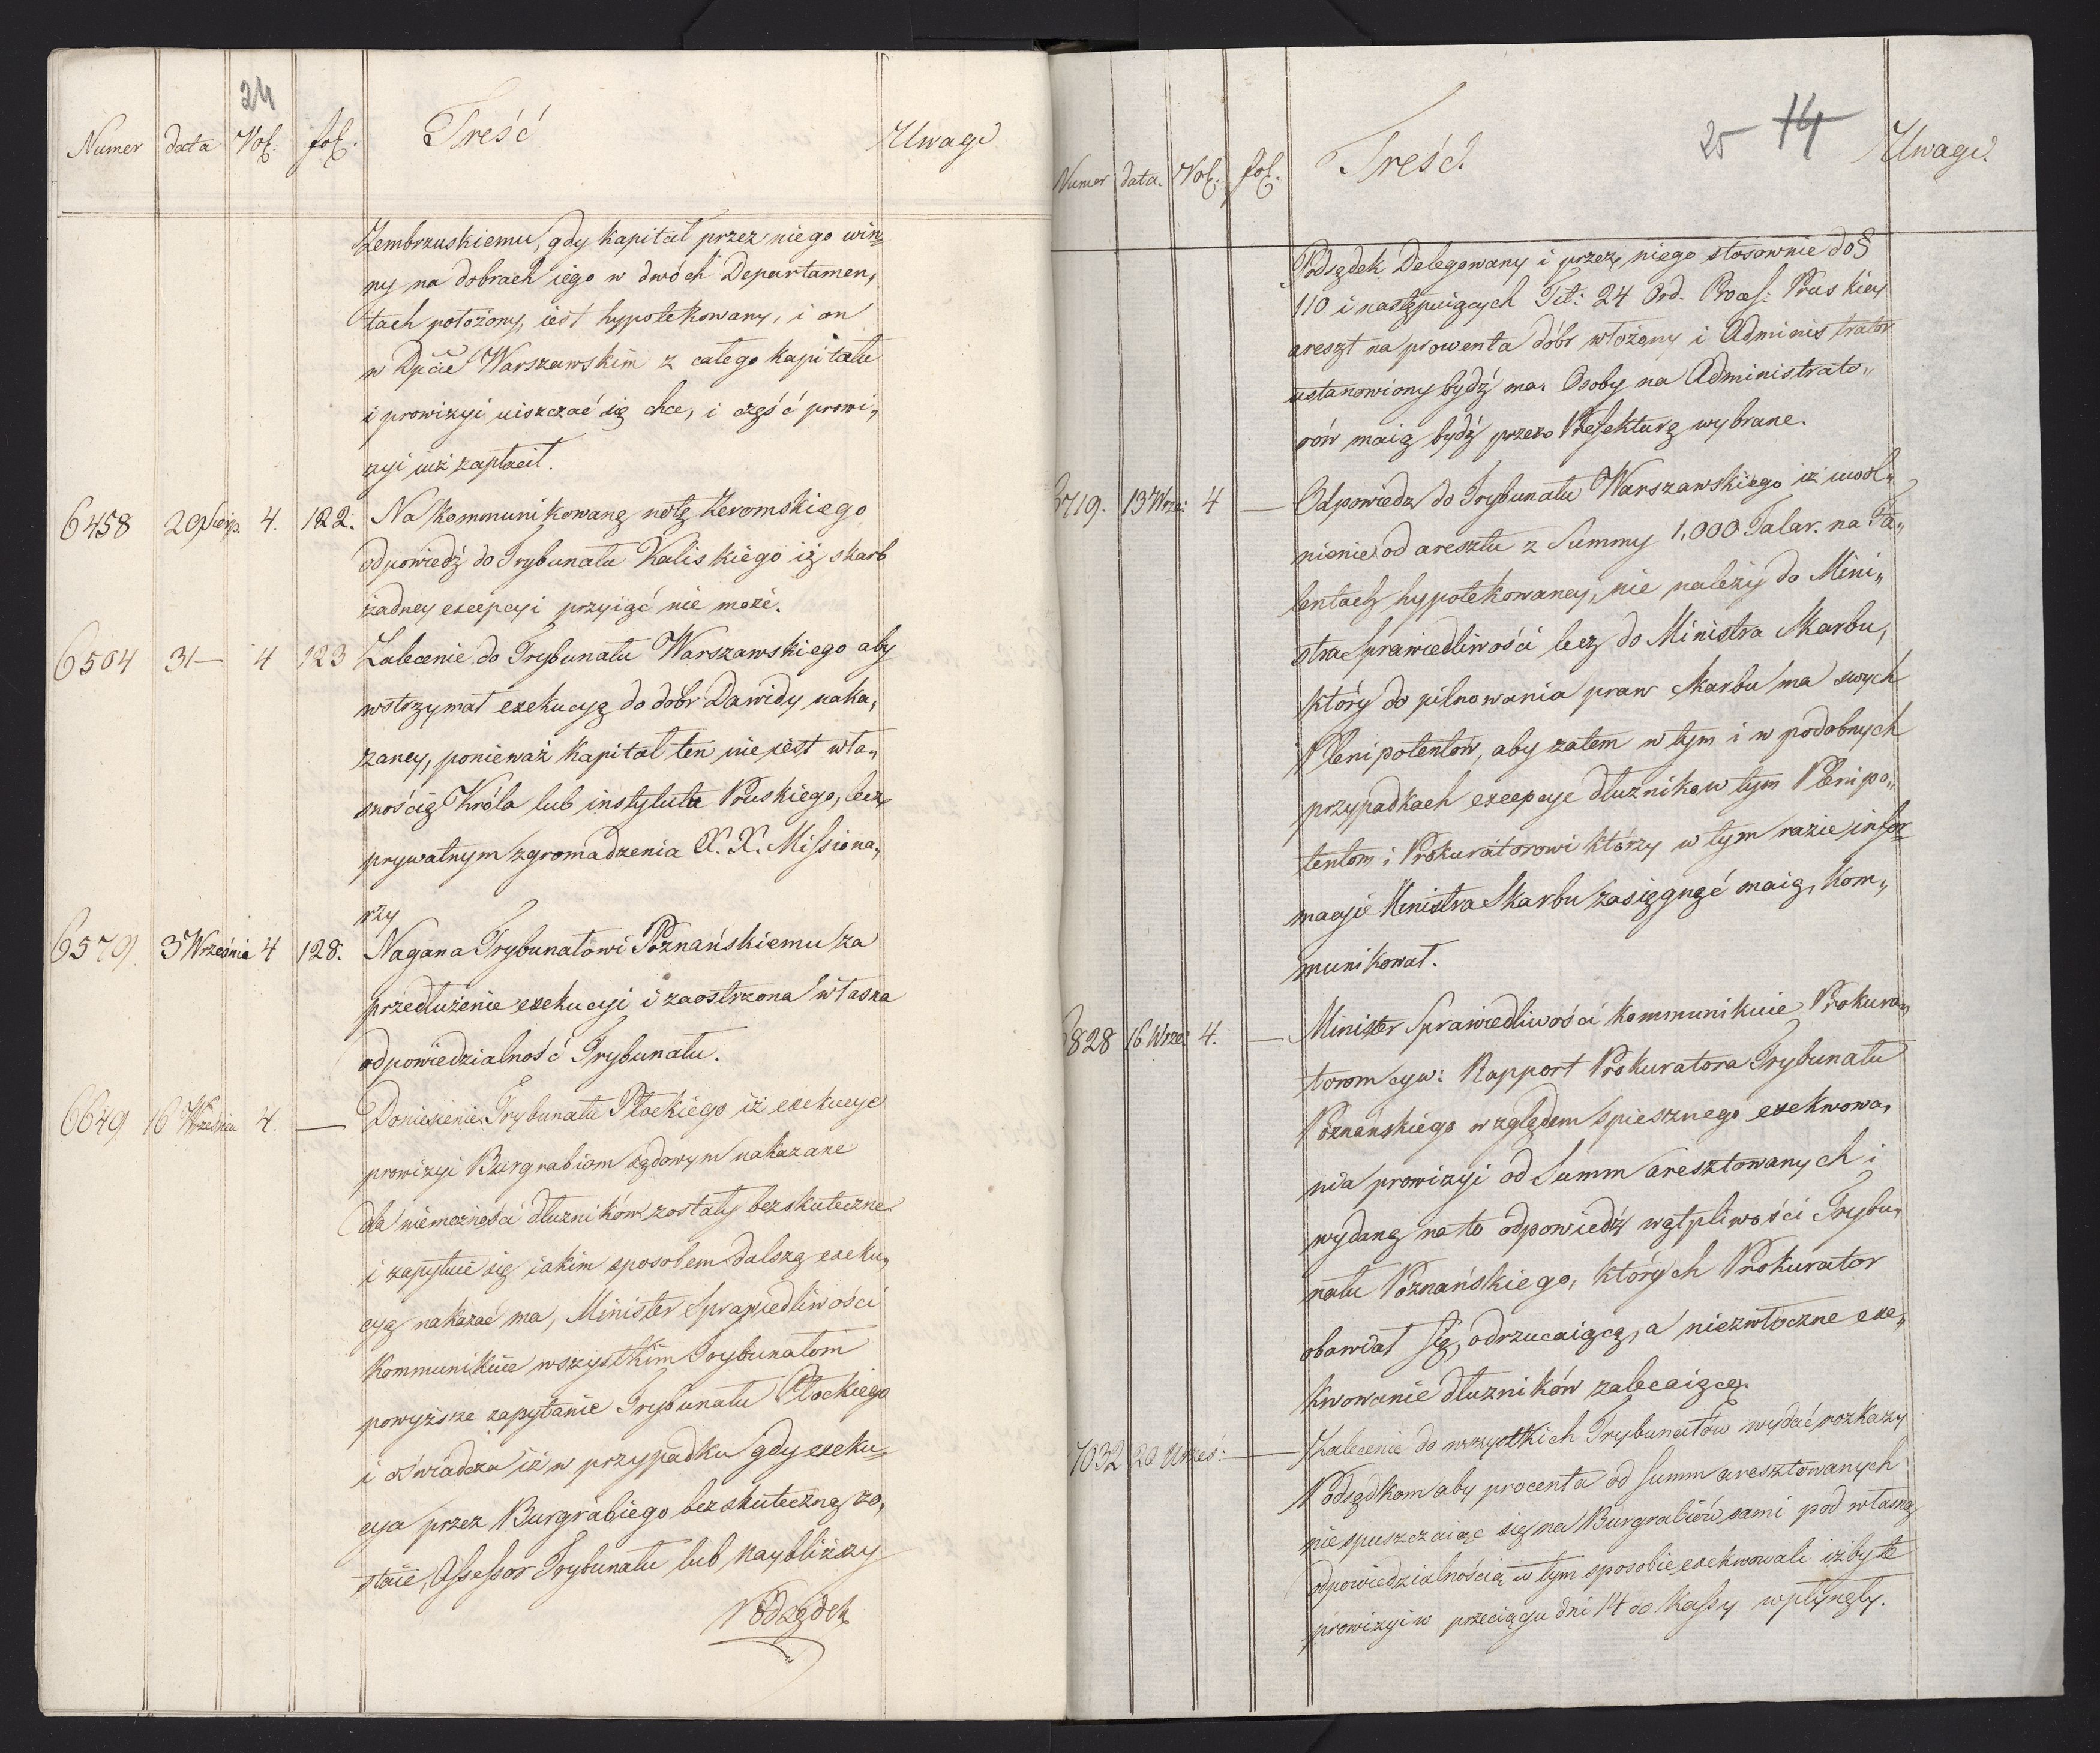 24
Numer data Vol: fol. Treść Uwagi
Zembrzuskiemu, gdy kapitał przez niego win„
ny na dobrach iego w dwóch Departamen„
tach położony, iest hypotekowany, i on
w Dpcie Warszawskim z całego kapitału
i prowizyi uiszczać się chce, i część prowi„
zyi już zapłacił.
6458 29 Sierp. 4. 122. Na kommunikowaną notę Zeromskiego
odpowiedź do Trybunału Kaliskiego iż skarb
żadney excepcyi przyiąć nie może.
6504 31 — 4 123 Zalecenie do Trybunału Warszawskiego aby
wstrzymał exekucyą do dóbr Dawidy naka„
zaney, ponieważ kapitał ten nie iest wła„
snością Króla lub instytutu Pruskiego, lecz
prywatnym zgromadzenia X. X. Missiona„
rzy
6579. 3 Września 4 128. Nagana Trybunałowi Poznańskiemu za
przedłużenie exekucyi i zaostrzona własna
odpowiedzialność Trybunału.
6649 16 Września 4. — Doniesienie Trybunału Płockiego iż exekucye
prowizyi Burgrabiom sądowym nakazane
dla niemożności dłużników zostały bezskuteczne
i zapytuie się iakim sposobem dalszą exeku„
cyą nakazać ma, Minister Sprawiedliwości
Kommunikuie wszystkim Trybunałom
powyższe zapytanie Trybunału Płockiego
i oświadcza iż w przypadku gdy exeku„
cya przez Burgrabiego bezskuteczną zo„
staie, Assessor Trybunału lub naybliższy
Podsędek
25 14
Numer data. Vol. fol. Treść. Uwagi.
Podsędek Delegowany i przez niego stosownie do §
110 i następuiących Tit: 24 Ord. Proces: Pruskiey
areszt na prowenta dóbr włożony i Administrator
ustanowiony bydź ma. Osoby na Administrato„
rów maią bydź przez Prefekturę wybrane.
6719. 13 Wrze: 4 — Odpowiedz do Trybunału Warszawskiego iż uwol„
nienie od aresztu z Summy 1,000 Talar. na Ta„
lentach hypotekowaney, nie należy do Mini„
stra Sprawiedliwości lecz do Ministra Skarbu,
który do pilnowania praw Skarbu ma swych
Plenipotentów, aby zatem w tym i w podobnych
przypadkach excepcye dłużników tym Plenipo„
tentom i Prokuratorowi którzy w tym razie infor„
macyie Ministra Skarbu zasięgnąć maią, kom„
munikował.
6828 16 Wrze: 4. — Minister Sprawiedliwości kommunikuie Prokura„
torom cyw: Rapport Prokuratora Trybunału
Poznańskiego względem spiesznego exekwowa„
nia prowizyi od Summ aresztowanych i
wydaną na to odpowiedź wątpliwości Trybu„
nału Poznańskiego, których Prokurator
obawiał się, odrzucaiącą, a niezwłoczne exe„
kwowanie dłużników zalecaiącą.
7032 20 Wrześ: — Zalecenie do wszystkich Trybunałów wydać rozkazy
Podsędkom aby procenta od Summ aresztowanych
nie spuszczaiąc się na Burgrabiów, sami pod własną
odpowiedzialnością w tym sposobie exekwowali iżby te
prowizyi w przeciągu dni 14 do Kassy wpłynęły.